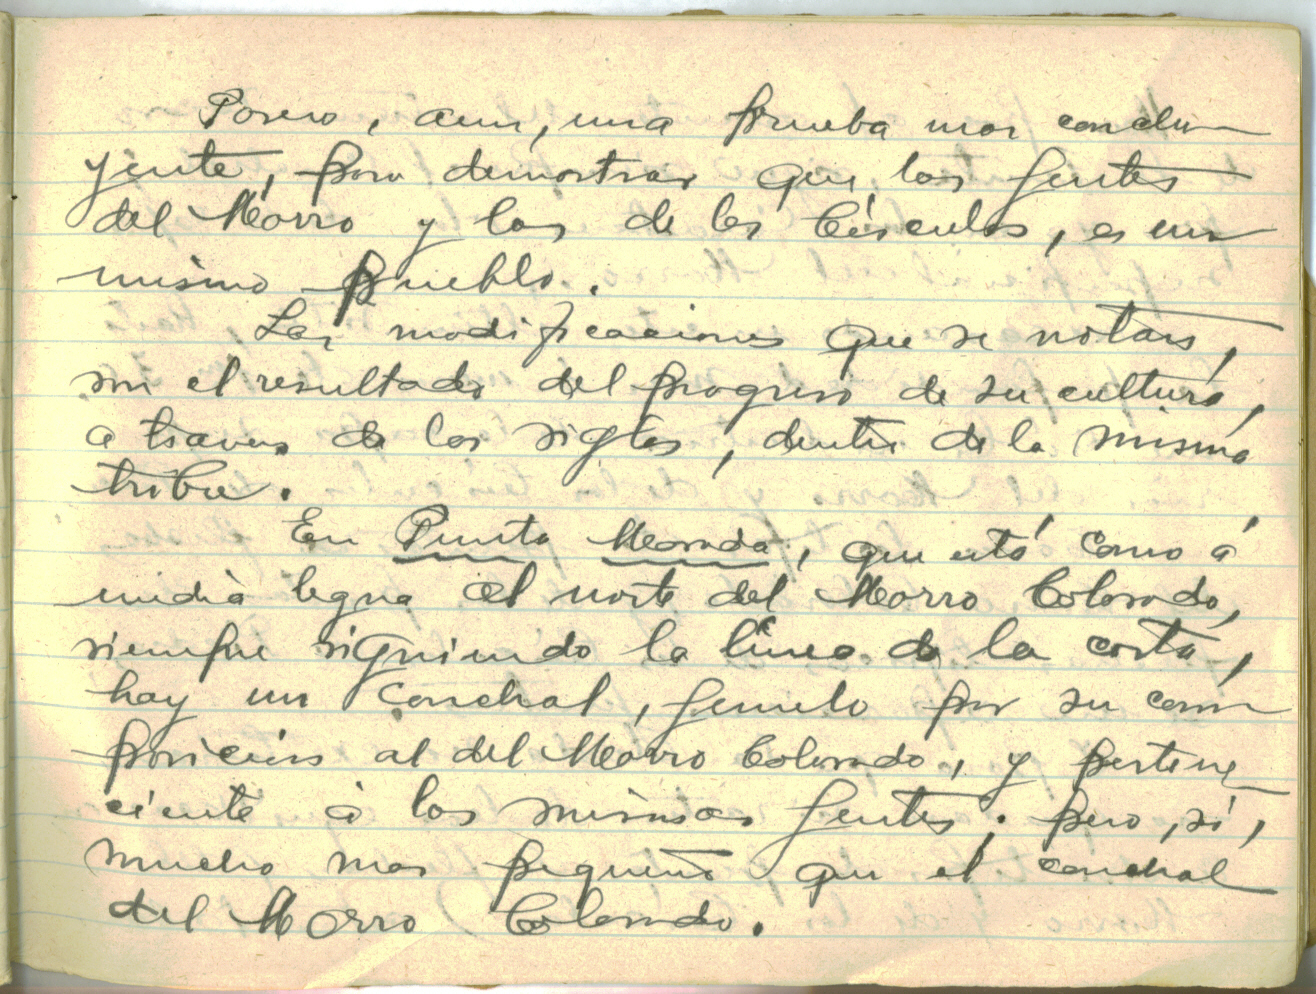 Poseo, aun, una prueba mas conclu-
yente, para demostrar que las gentes
del Morro y las de los Círculos, es un
mismo pueblo.
Las modificaciones que se notan,
son el resultado del progreso de su cultura,
a traves de los siglos, dentro de la misma
tribu.
En Punta Morada, que está como á
media legua al norte del Morro Colorado,
siempre siguiendo la línea de la costa,
hay un conchal, gemelo por su com-
posicion al del Morro Colorado, y pertene-
ciente á las mismas gentes; pero, sí,
mucho mas pequeño que el conchal
del Morro Colorado.